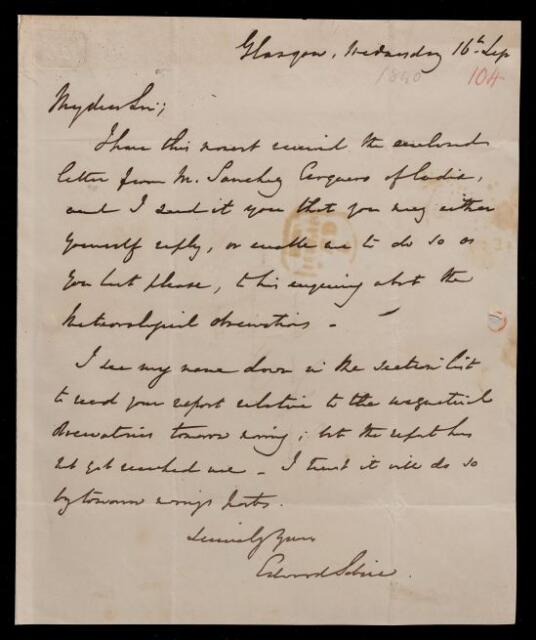 Glasgow, Wednesday 16th Sep
1840 104
My dear Sir;
I have this moment received the enclosed
letter from Mr. Sanchez Cerquero of Cadiz,
and I send it you that you may either
yourself reply, or enable me to do so as
you best please, to his enquiry about the
Meteorological observations -
I see my name down in the section list
to read your report relative to the magnetical
observatories tomorrow morning; but the report has
not yet reached me - I trust it will do so
by tomorrow mornings post.
Sincerely yours
Edward Sabine.